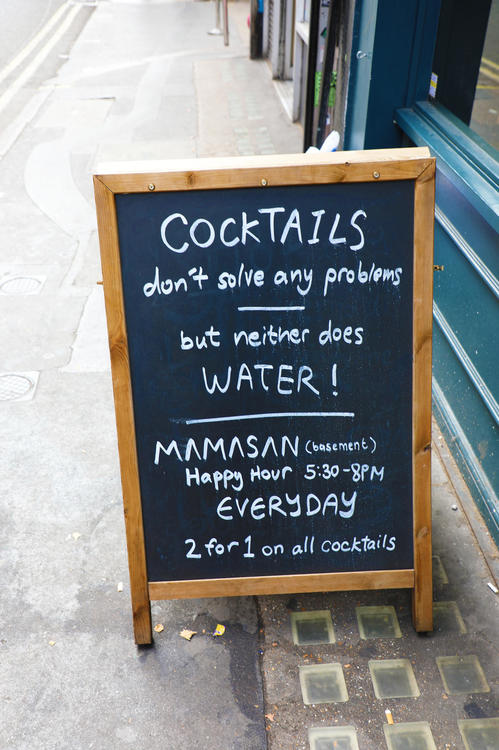 COCKTAILS
don't solve any problems
but neither does
WATER!
MAMASAN (basement)
Happy Hour 5:30-8PM
EVERYDAY
2 for 1 on all cocktails